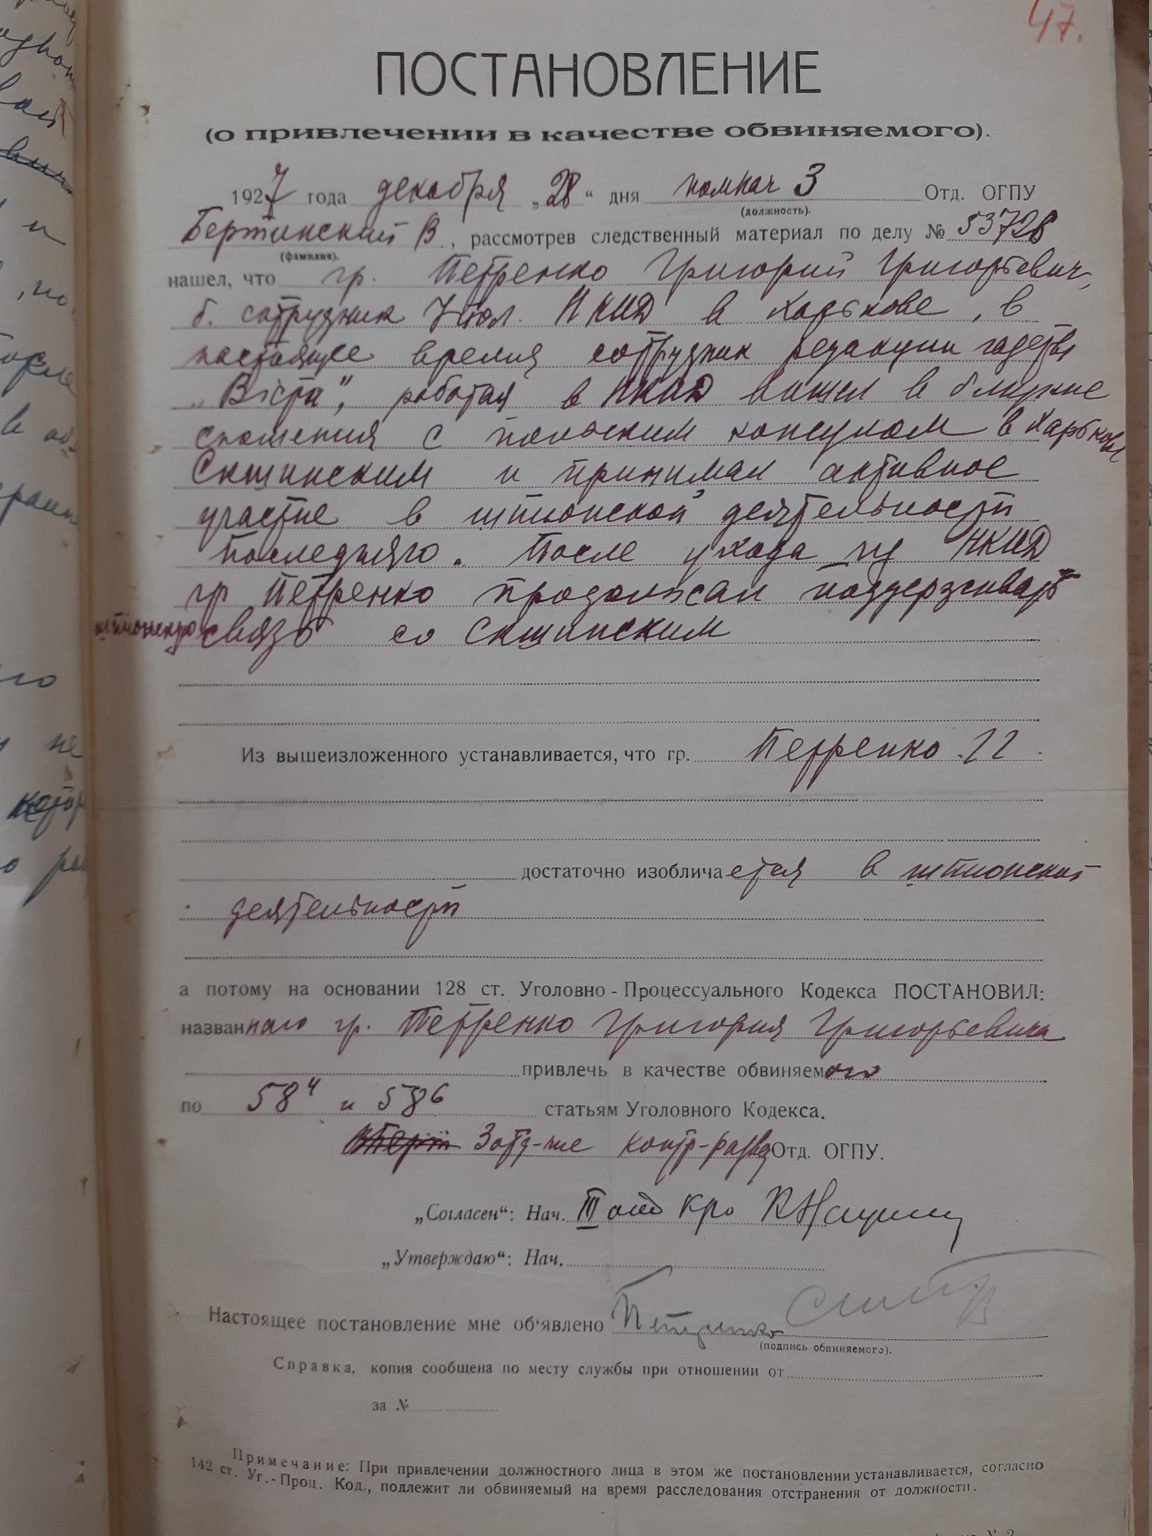 47.
ПОСТАНОВЛЕНИЕ
(о привлечении в качестве обвиняемого).
1927 года декабря „28“ дня помнач 3 Отд. ОГПУ
(должность).
Бертинский В, рассмотрев следственный материал по делу № 53728
(фамилия).
нашел, что гр. Петренко Григорий Григорьевич,
б. сотрудник Упол. НКИД в Харькове, в
настоящее время сотрудник редакции газеты
„Вiстi“, работая в НКИД вошел в близкие
сношения с польским консулом в Харькове
Скшинским и принимал активное
участие в шпионской деятельности
последнего. После ухода из НКИД
гр Петренко продолжал поддерживать
шпионскую связь со Скшинским
Из вышеизложенного устанавливается, что гр. Петренко ГГ.
достаточно изобличается в шпионской
деятельности
а потому на основании 128 ст. Уголовно-Процессуального Кодекса ПОСТАНОВИЛ:
названного гр. Петренко Григория Григорьевича
привлечь в качестве обвиняемого
по 58⁴ и 58⁶ статьям Уголовного Кодекса.
контр-разв Отд. ОГПУ.
„Согласен“: Нач. III отд Кро
„Утверждаю“: Нач.
Настоящее постановление мне об'явлено Петренко
(подпись обвиняемого).
Справка, копия сообщена по месту службы при отношении от
за №
Примечание: При привлечении должностного лица в этом же постановлении устанавливается, согласно
142 ст. Уг.-Проц. Код., подлежит ли обвиняемый на время расследования отстранения от должности.